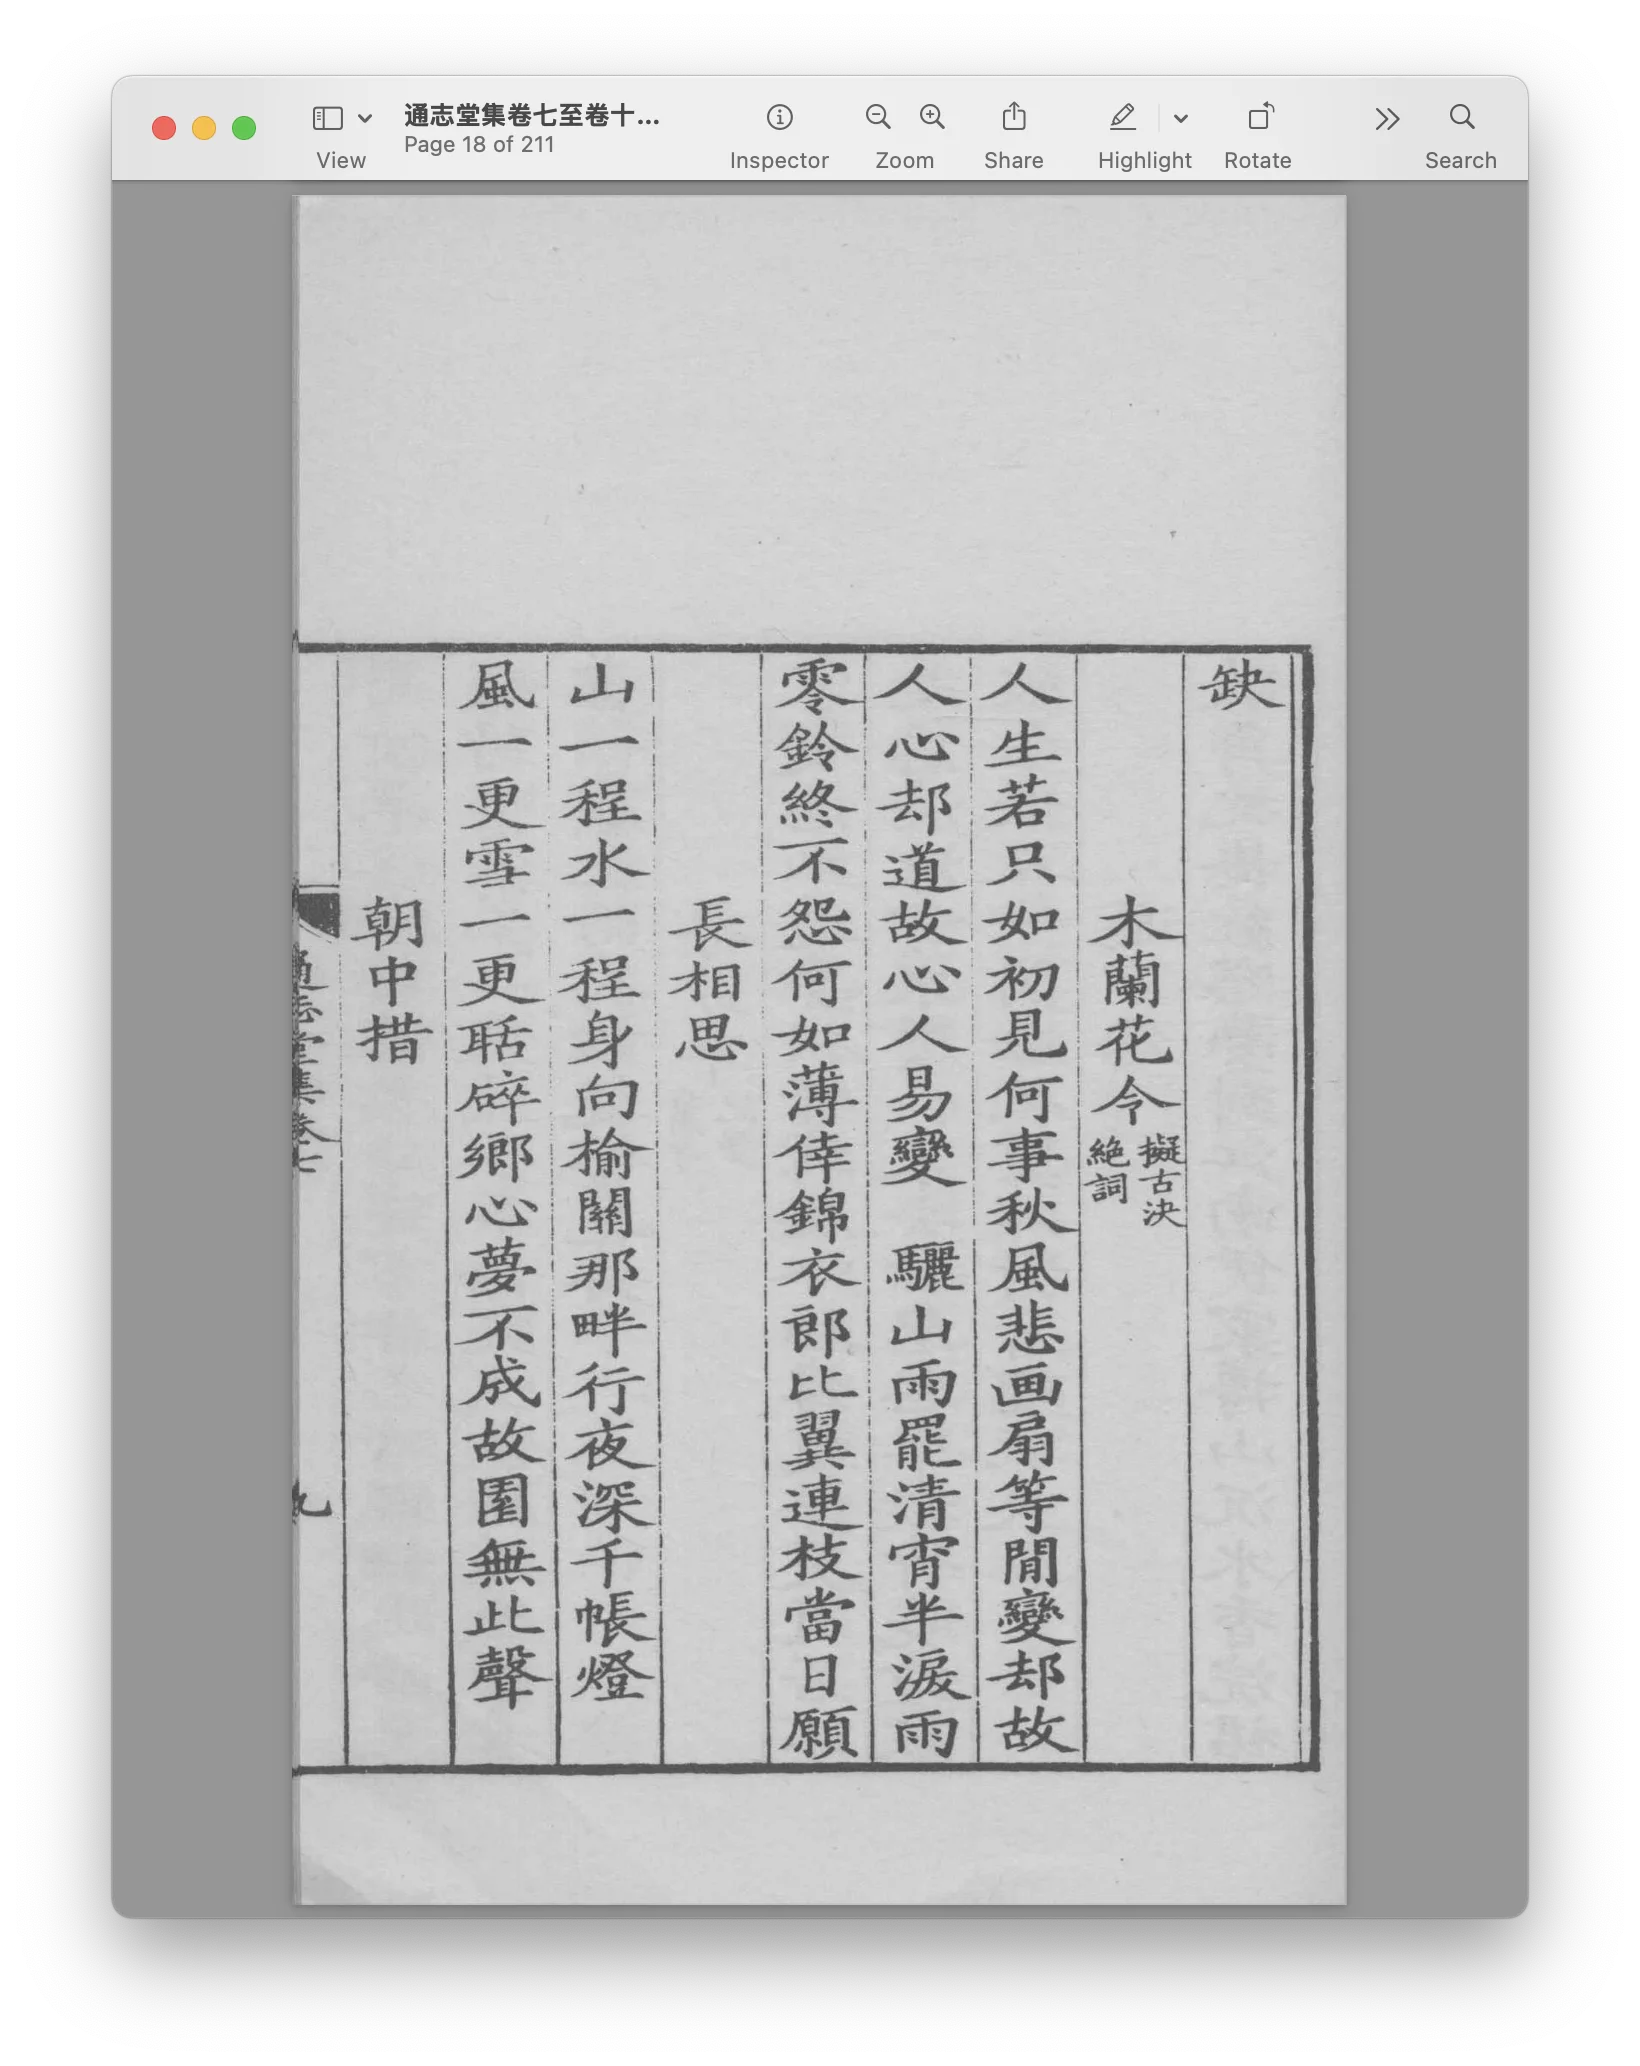 通志堂集卷七至卷十...
Page 18 of 211
View
Inspector
Zoom
Share
Highlight
Rotate
Search
缺
木蘭花令 擬古決絶詞
人生若只如初見何事秋風悲画扇等閒變却故
人心却道故心人易變 驪山雨罷清宵半淚雨
零鈴終不怨何如薄倖錦衣郎比翼連枝當日願
長相思
山一程水一程身向榆關那畔行夜深千帳燈
風一更雪一更聒碎鄉心夢不成故園無此聲
朝中措
通志堂集卷七
九